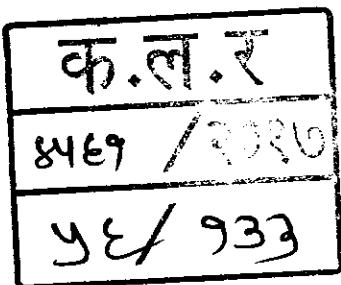 क.ल.र
४५६१ / २०१७
५६/ १३३